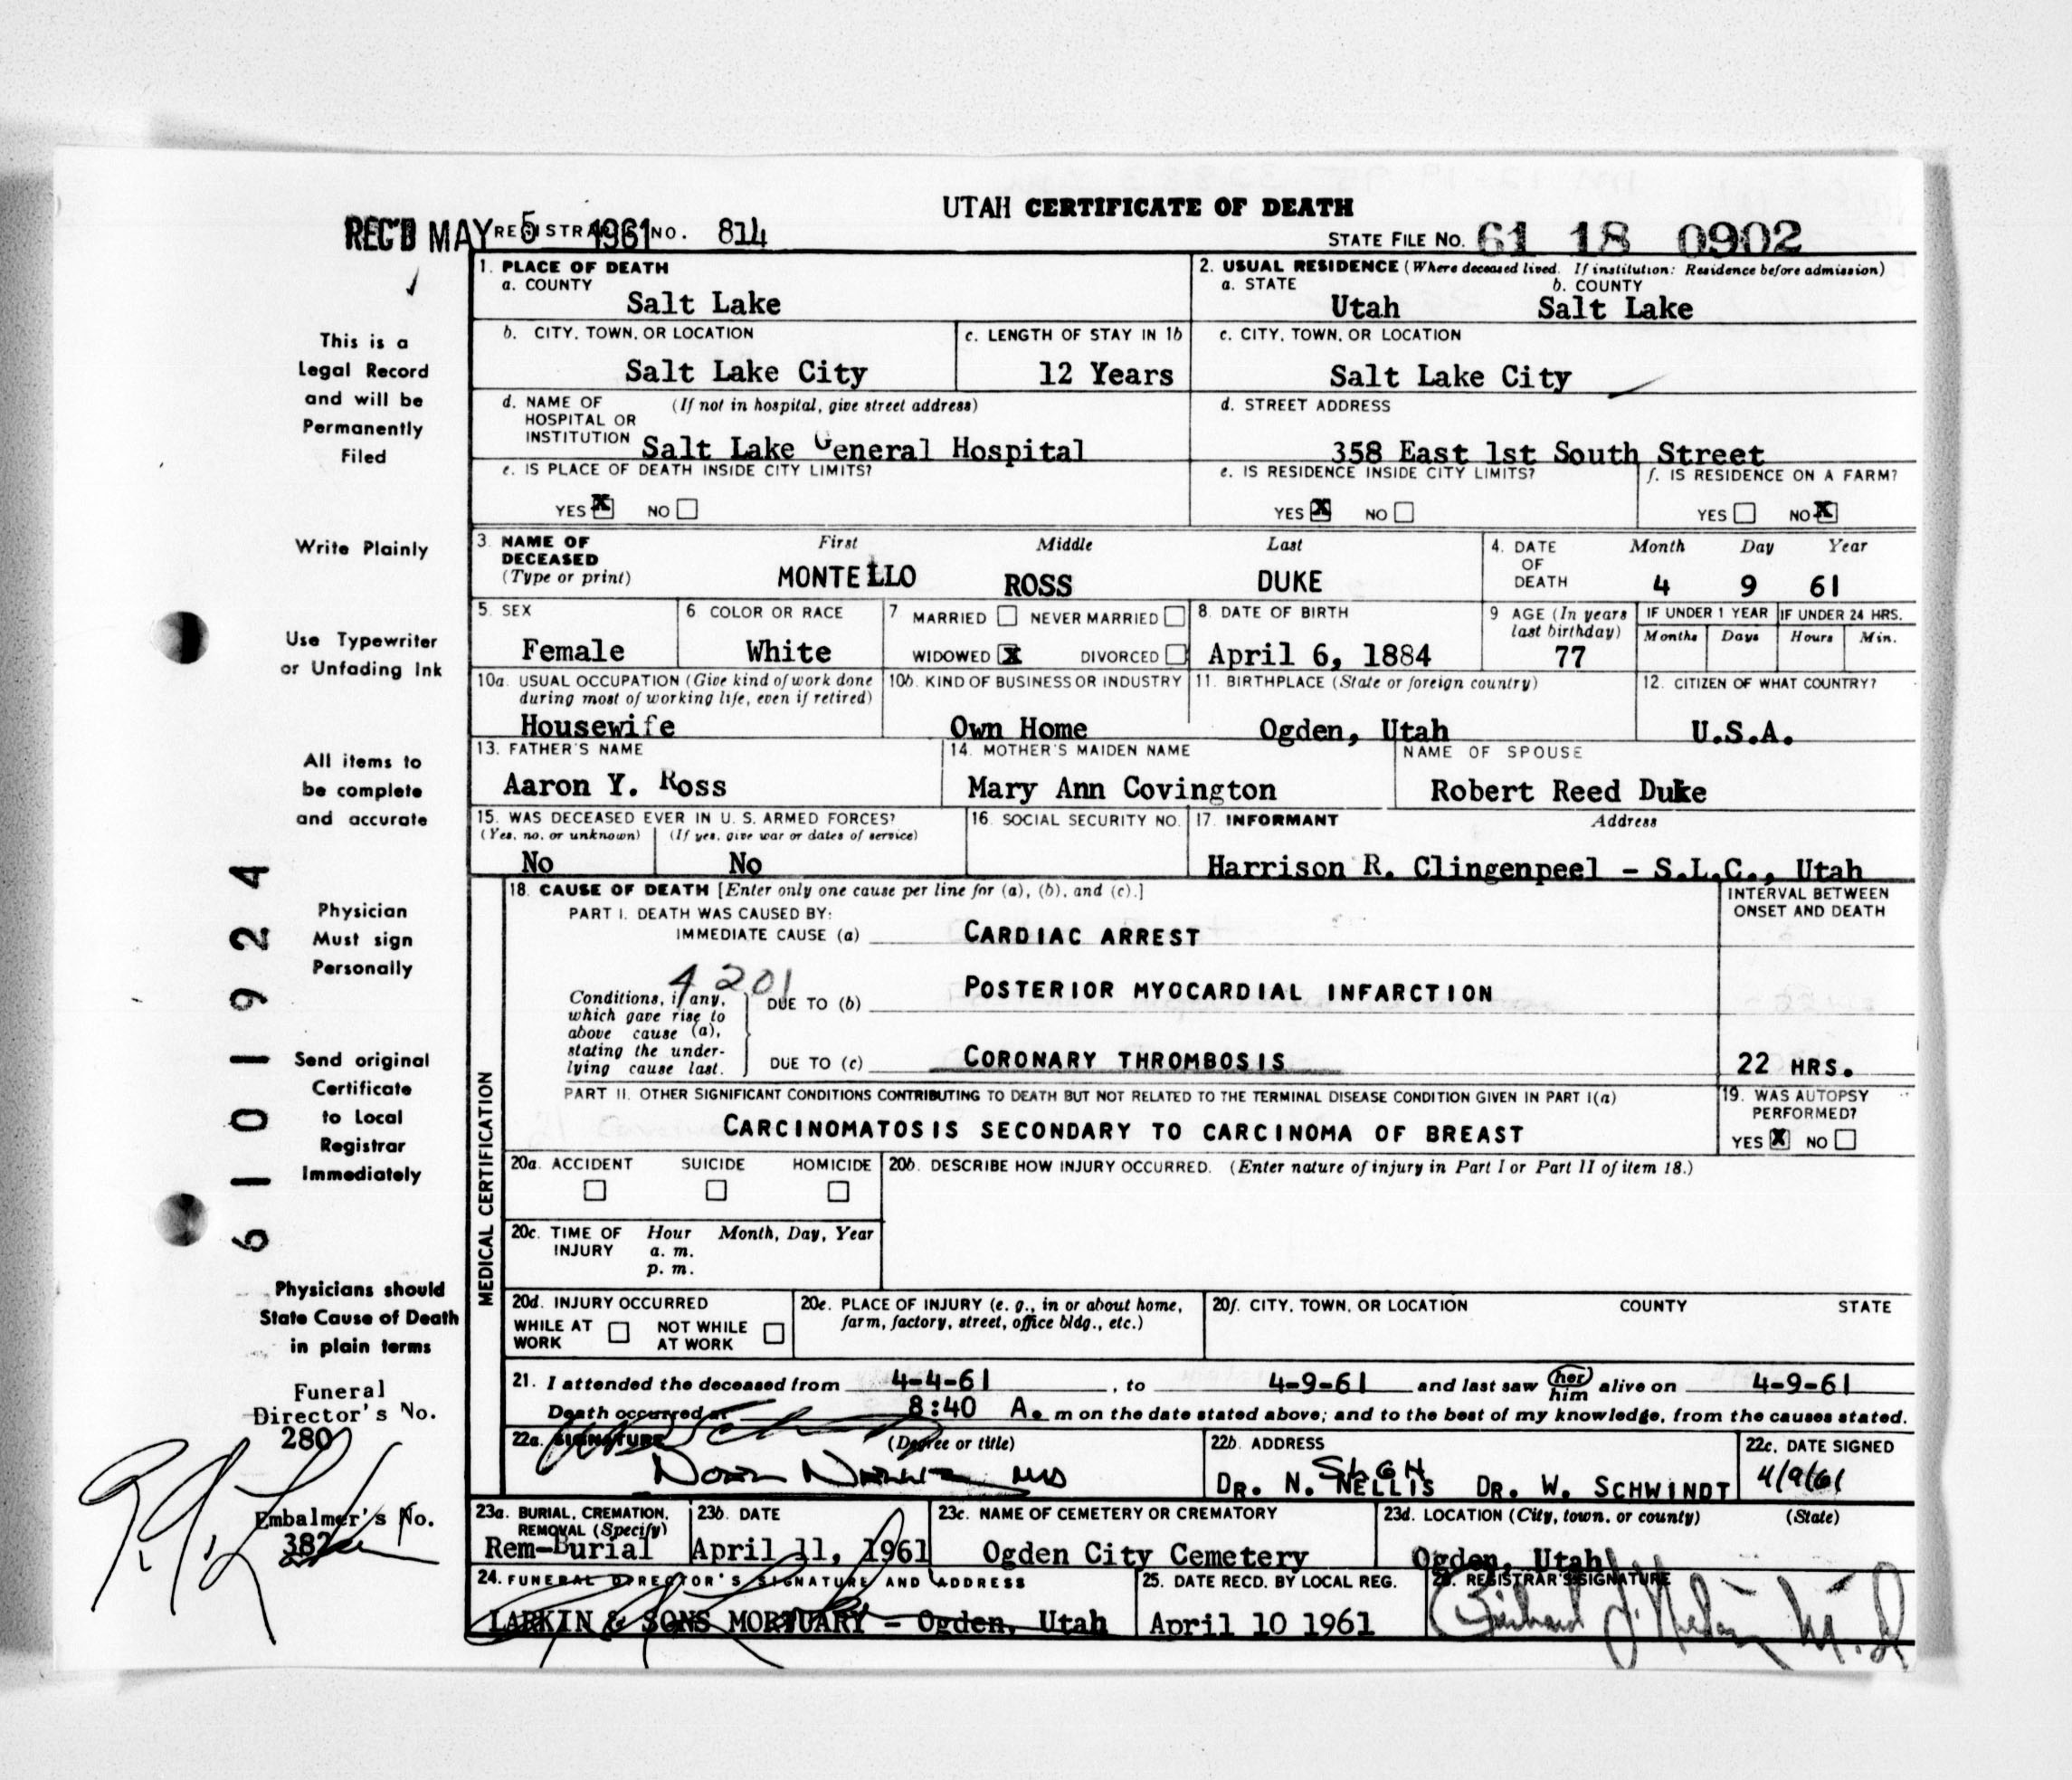 UTAH CERTIFICATE OF DEATH
REC'D MAY 5 1961 REGISTRAR'S NO. 814
STATE FILE NO. 61 18 0902
1. PLACE OF DEATH
a. COUNTY
Salt Lake
2. USUAL RESIDENCE (Where deceased lived. If institution: Residence before admission)
a. STATE b. COUNTY
Utah Salt Lake
b. CITY, TOWN, OR LOCATION
Salt Lake City
c. LENGTH OF STAY IN 1b
12 Years
c. CITY, TOWN, OR LOCATION
Salt Lake City
d. NAME OF HOSPITAL OR INSTITUTION (If not in hospital, give street address)
Salt Lake General Hospital
d. STREET ADDRESS
358 East 1st South Street
e. IS PLACE OF DEATH INSIDE CITY LIMITS?
YES X NO
e. IS RESIDENCE INSIDE CITY LIMITS?
YES X NO
f. IS RESIDENCE ON A FARM?
YES NO X
3. NAME OF DECEASED (Type or print)
First Middle Last
MONTELLO ROSS DUKE
4. DATE OF DEATH
Month Day Year
4 9 61
5. SEX
Female
6. COLOR OR RACE
White
7. MARRIED NEVER MARRIED
WIDOWED X DIVORCED
8. DATE OF BIRTH
April 6, 1884
9. AGE (In years last birthday)
77
IF UNDER 1 YEAR
Months Days
IF UNDER 24 HRS.
Hours Min.
10a. USUAL OCCUPATION (Give kind of work done during most of working life, even if retired)
Housewife
10b. KIND OF BUSINESS OR INDUSTRY
Own Home
11. BIRTHPLACE (State or foreign country)
Ogden, Utah
12. CITIZEN OF WHAT COUNTRY?
U.S.A.
13. FATHER'S NAME
Aaron Y. Ross
14. MOTHER'S MAIDEN NAME
Mary Ann Covington
NAME OF SPOUSE
Robert Reed Duke
15. WAS DECEASED EVER IN U. S. ARMED FORCES?
(Yes, no, or unknown) (If yes, give war or dates of service)
No No
16. SOCIAL SECURITY NO.
17. INFORMANT Address
Harrison R. Clingenpeel - S.L.C., Utah
MEDICAL CERTIFICATION
18. CAUSE OF DEATH [Enter only one cause per line for (a), (b), and (c).]
PART I. DEATH WAS CAUSED BY:
IMMEDIATE CAUSE (a) CARDIAC ARREST
INTERVAL BETWEEN ONSET AND DEATH
4201
Conditions, if any, which gave rise to above cause (a), stating the underlying cause last.
DUE TO (b) POSTERIOR MYOCARDIAL INFARCTION
DUE TO (c) CORONARY THROMBOSIS
22 HRS.
PART II. OTHER SIGNIFICANT CONDITIONS CONTRIBUTING TO DEATH BUT NOT RELATED TO THE TERMINAL DISEASE CONDITION GIVEN IN PART I(a)
CARCINOMATOSIS SECONDARY TO CARCINOMA OF BREAST
19. WAS AUTOPSY PERFORMED?
YES X NO
20a. ACCIDENT SUICIDE HOMICIDE
20b. DESCRIBE HOW INJURY OCCURRED. (Enter nature of injury in Part I or Part II of item 18.)
20c. TIME OF INJURY Hour Month, Day, Year
a. m.
p. m.
20d. INJURY OCCURRED
WHILE AT WORK NOT WHILE AT WORK
20e. PLACE OF INJURY (e. g., in or about home, farm, factory, street, office bldg., etc.)
20f. CITY, TOWN, OR LOCATION COUNTY STATE
21. I attended the deceased from 4-4-61, to 4-9-61 and last saw her him alive on 4-9-61
Death occurred at 8:40 A. m on the date stated above; and to the best of my knowledge, from the causes stated.
22a. SIGNATURE (Degree or title)
MD
22b. ADDRESS
SLGH
DR. N. NELLIS DR. W. SCHWINDT
22c. DATE SIGNED
4/9/61
23a. BURIAL, CREMATION, REMOVAL (Specify)
Rem-Burial
23b. DATE
April 11, 1961
23c. NAME OF CEMETERY OR CREMATORY
Ogden City Cemetery
23d. LOCATION (City, town, or county) (State)
Ogden, Utah
24. FUNERAL DIRECTOR'S SIGNATURE AND ADDRESS
LARKIN & SONS MORTUARY - Ogden, Utah
25. DATE RECD. BY LOCAL REG.
April 10 1961
26. REGISTRAR'S SIGNATURE
This is a
Legal Record
and will be
Permanently
Filed
Write Plainly
Use Typewriter
or Unfading Ink
All items to
be complete
and accurate
Physician
Must sign
Personally
Send original
Certificate
to Local
Registrar
Immediately
Physicians should
State Cause of Death
in plain terms
Funeral
Director's No.
280
Embalmer's No.
382
61 01924